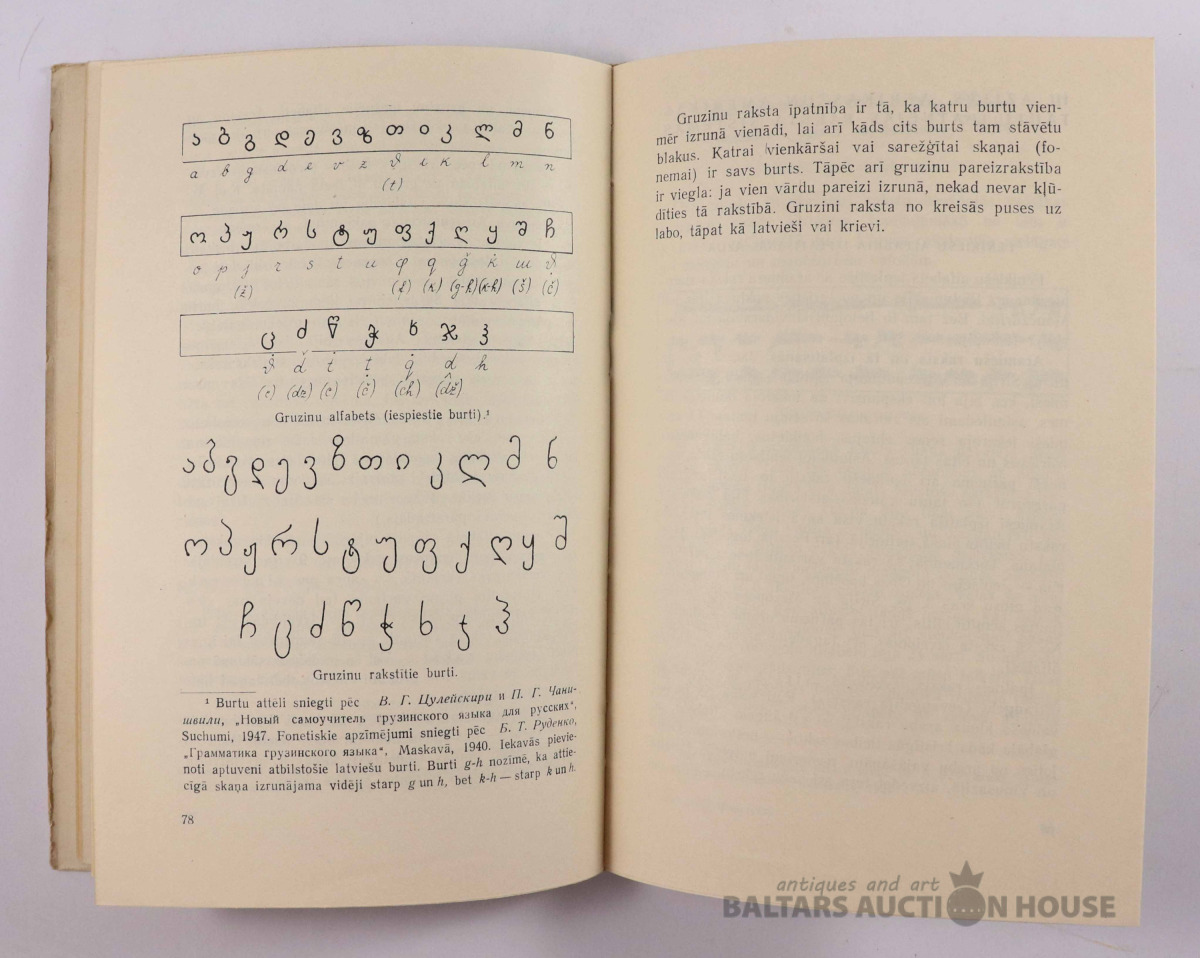 ა ბ გ დ ე ვ ზ თ ი კ ლ მ ნ
a b g d e v z ϑ i k l m n
(t)
ო პ ჟ რ ს ტ უ ფ ქ ღ ყ შ ჩ
o p j r s t u φ q ġ k̇ ш ϑ̣
(ž) (f) (k) (g-h) (k-h) (š) (č)
ც ძ წ ჭ ხ ჯ ჰ
(c) (dz) (c) (č) (ch) (dž)
Gruzinu alfabets (iespiestie burti).¹
ა ბ გ დ ე ვ ზ თ ი კ ლ მ ნ
ო პ ჟ რ ს ტ უ ფ ქ ღ ყ შ
ჩ ც ძ წ ჭ ხ ჯ ჰ
Gruzinu rakstītie burti.
¹ Burtu attēli sniegti pēc В. Г. Цулейскири и П. Г. Чани-
швили, „Новый самоучитель грузинского языка для русских“,
Suchumi, 1947. Fonetiskie apzīmējumi sniegti pēc Б. Т. Руденко,
„Грамматика грузинского языка“, Maskavā, 1940. Iekavās pievie-
noti aptuveni atbilstošie latviešu burti. Burti g-h nozīmē, ka attie-
cīgā skaņa izrunājama vidēji starp g un h, bet k-h — starp k un h.
78
Gruzinu raksta īpatnība ir tā, ka katru burtu vien-
mēr izrunā vienādi, lai arī kāds cits burts tam stāvētu
blakus. Katrai vienkāršai vai sarežģītai skaņai (fo-
nemai) ir savs burts. Tāpēc arī gruzinu pareizrakstība
ir viegla: ja vien vārdu pareizi izrunā, nekad nevar kļū-
dīties tā rakstībā. Gruzini raksta no kreisās puses uz
labo, tāpat kā latvieši vai krievi.
antiques and art
BALTARS AUCTION HOUSE